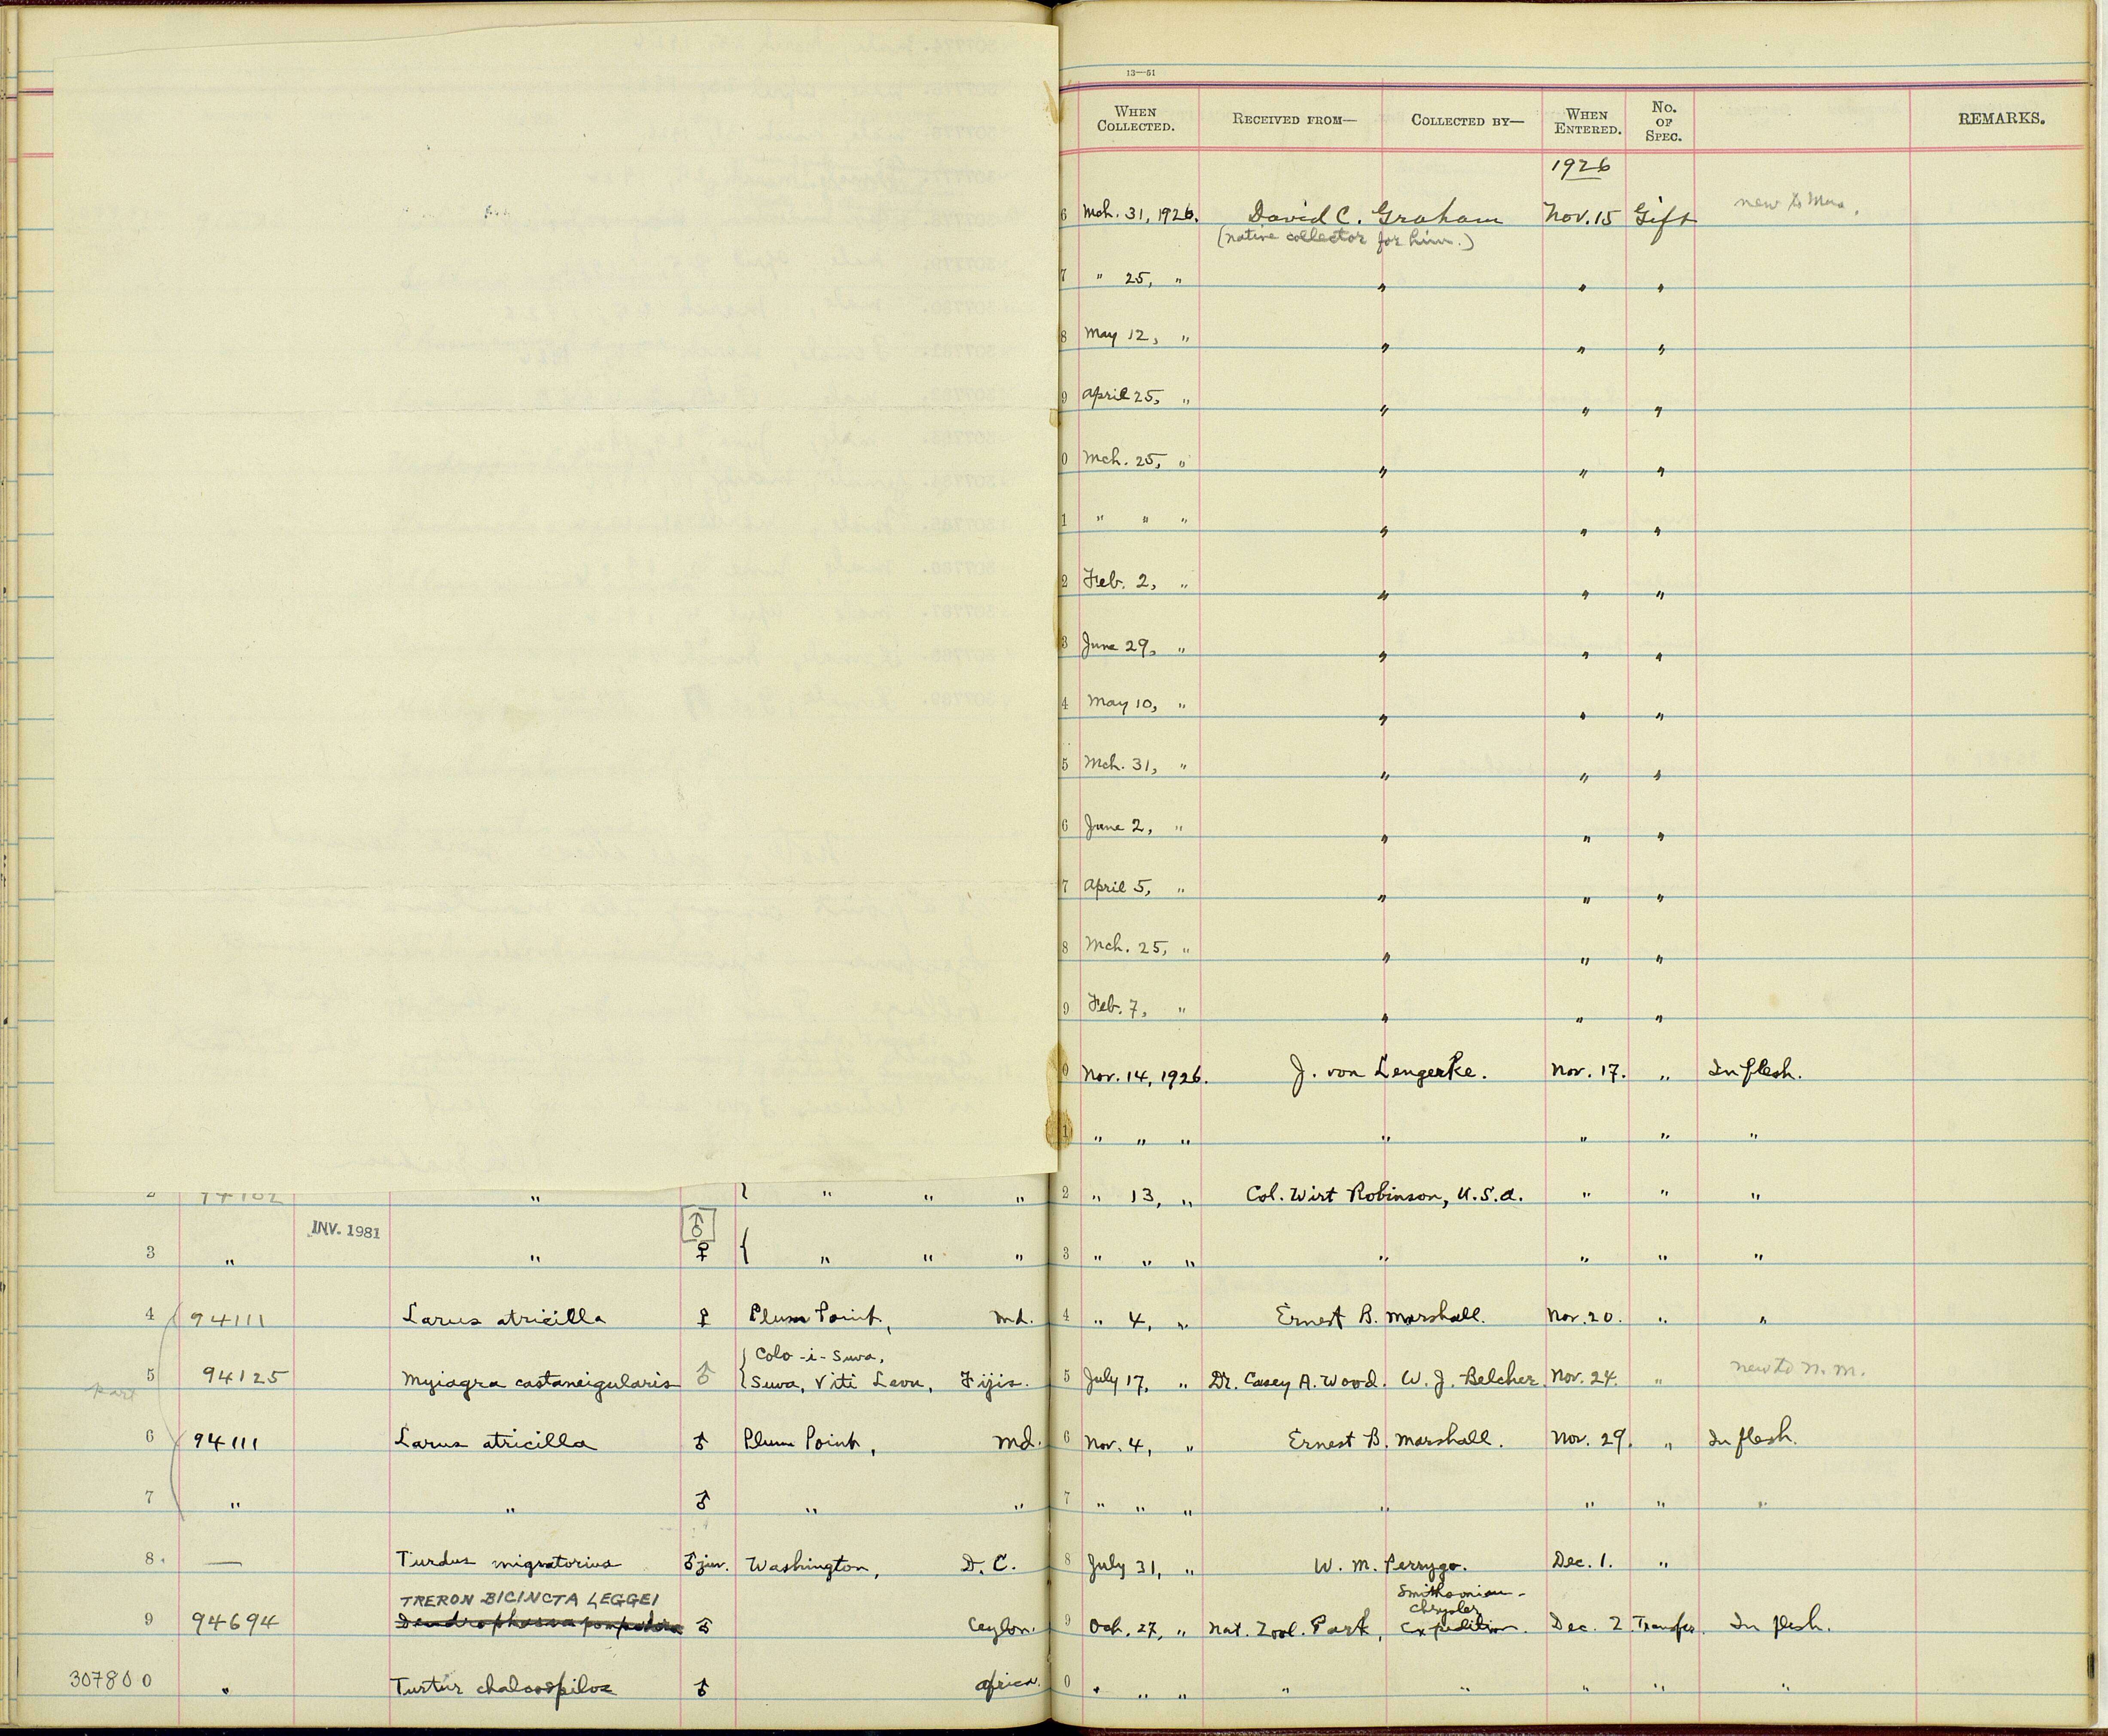 13—51
WHEN COLLECTED. RECEIVED FROM— COLLECTED BY— WHEN ENTERED. NO. OF SPEC. REMARKS.
1926
6 Mch. 31, 1926. David C. Graham Nov. 15 Gift new to Mus.
(native collector for him.)
7 " 25, " " " "
8 May 12, " " " "
9 April 25, " " " "
0 Mch. 25, " " " "
1 " " " " " "
2 Feb. 2, " " " "
3 June 29, " " " "
4 May 10, " " " "
5 Mch. 31, " " " "
6 June 2, " " " "
7 April 5, " " " "
8 Mch. 25, " " " "
9 Feb. 7, " " " "
0 Nov. 14, 1926. J. von Lengerke. Nov. 17. " In flesh.
1 " " " " " " "
2 94102 " { " " " 2 " 13, " Col. Wirt Robinson, U.S.A. " " "
INV. 1981 ♂
3 " " ♀ { " " " 3 " " " " " " "
4 94111 Larus atricilla ♀ Plum Point, Md. 4 " 4, " Ernest B. Marshall. Nov. 20. " "
{ Colo-i-Suva,
5 94125 Myiagra castaneigularis ♂ Suva, Viti Levu, Fijis. 5 July 17, " Dr. Casey A. Wood. W. J. Belcher. Nov. 24. " new to N. M.
Part
6 94111 Larus atricilla ♂ Plum Point, Md. 6 Nov. 4, " Ernest B. Marshall. Nov. 29. " In flesh.
7 " " ♂ " " 7 " " " " " " "
8. — Turdus migratorius ♂ juv. Washington, D. C. 8 July 31, " W. M. Perrygo. Dec. 1. "
TRERON BICINCTA LEGGEI Smithsonian-
Chrysler
9 94694 Dendrophassa pompadora ♂ Ceylon. 9 Oct. 27, " Nat. Zool. Park, Expedition. Dec. 2 Transfer. In flesh.
307800 " Turtur chalcospilos ♂ Africa. 0 " " " " " " " "